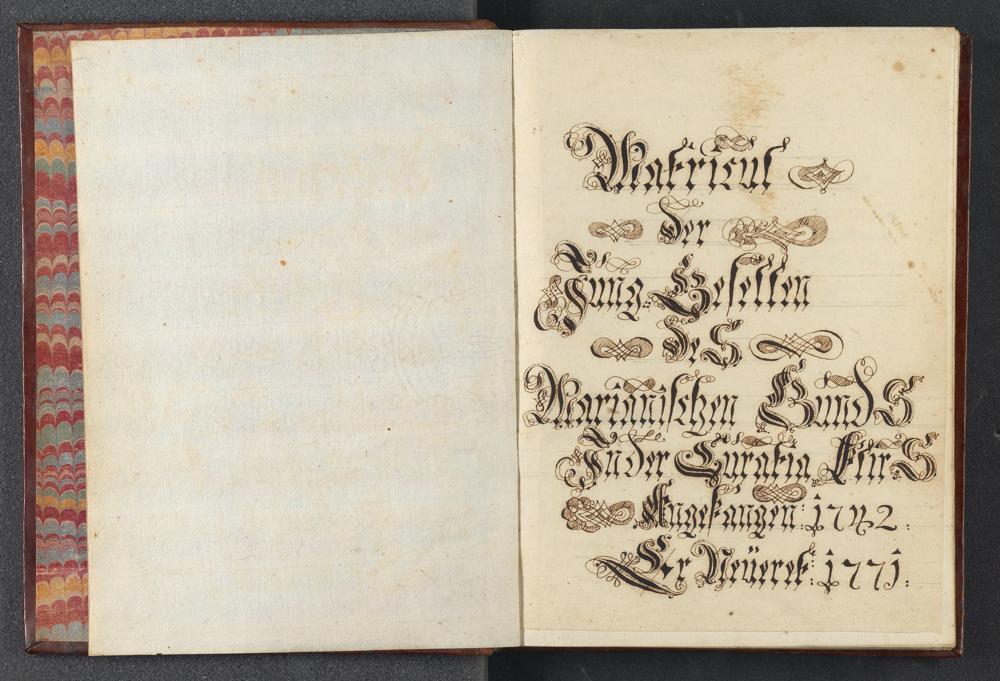 Matricul
der
Jung-Gesellen
des
Marianischen Bunds
In der Curatia Flirs
Angefangen: 1742.
Er Neüeret: 1771.